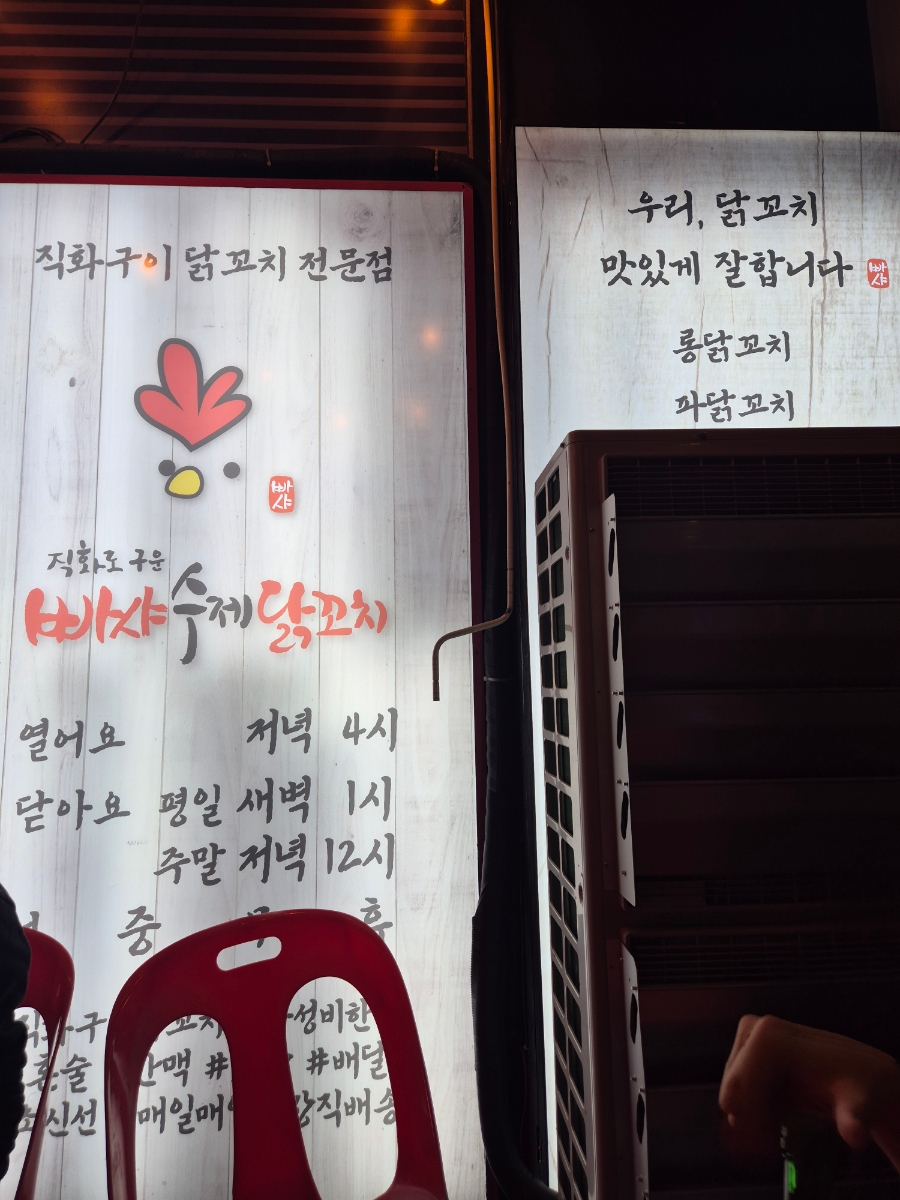 직화구이 닭꼬치 전문점
빠샤
직화로 구운
빠샤수제닭꼬치
열어요 저녁 4시
닫아요 평일 새벽 1시
주말 저녁 12시
중 휴
#배달
매일매
우리, 닭꼬치
맛있게 잘합니다
빠샤
롱닭꼬치
파닭꼬치